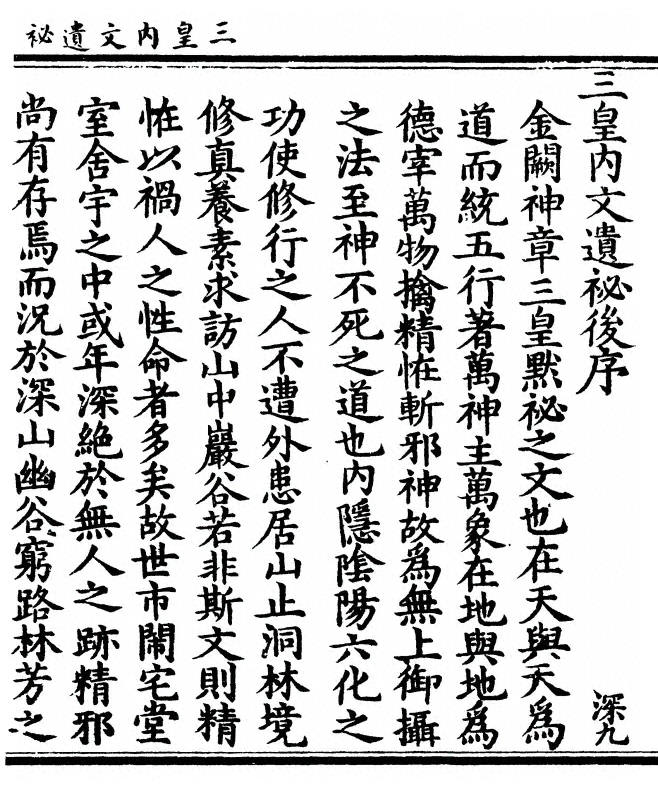 三皇內文遺祕
三皇內文遺祕後序
深九
金闕神章三皇默祕之文也在天與天爲
道而統五行著萬神主萬象在地與地爲
德宰萬物擒精恠斬邪神故爲無上御攝
之法至神不死之道也內隱隂陽六化之
功使修行之人不遭外患居山止洞林境
修真養素求訪山中巖谷若非斯文則精
恠以禍人之性命者多矣故世市閙宅堂
室舍宇之中或年深絶於無人之跡精邪
尚有存焉而況於深山幽谷窮路林芳之